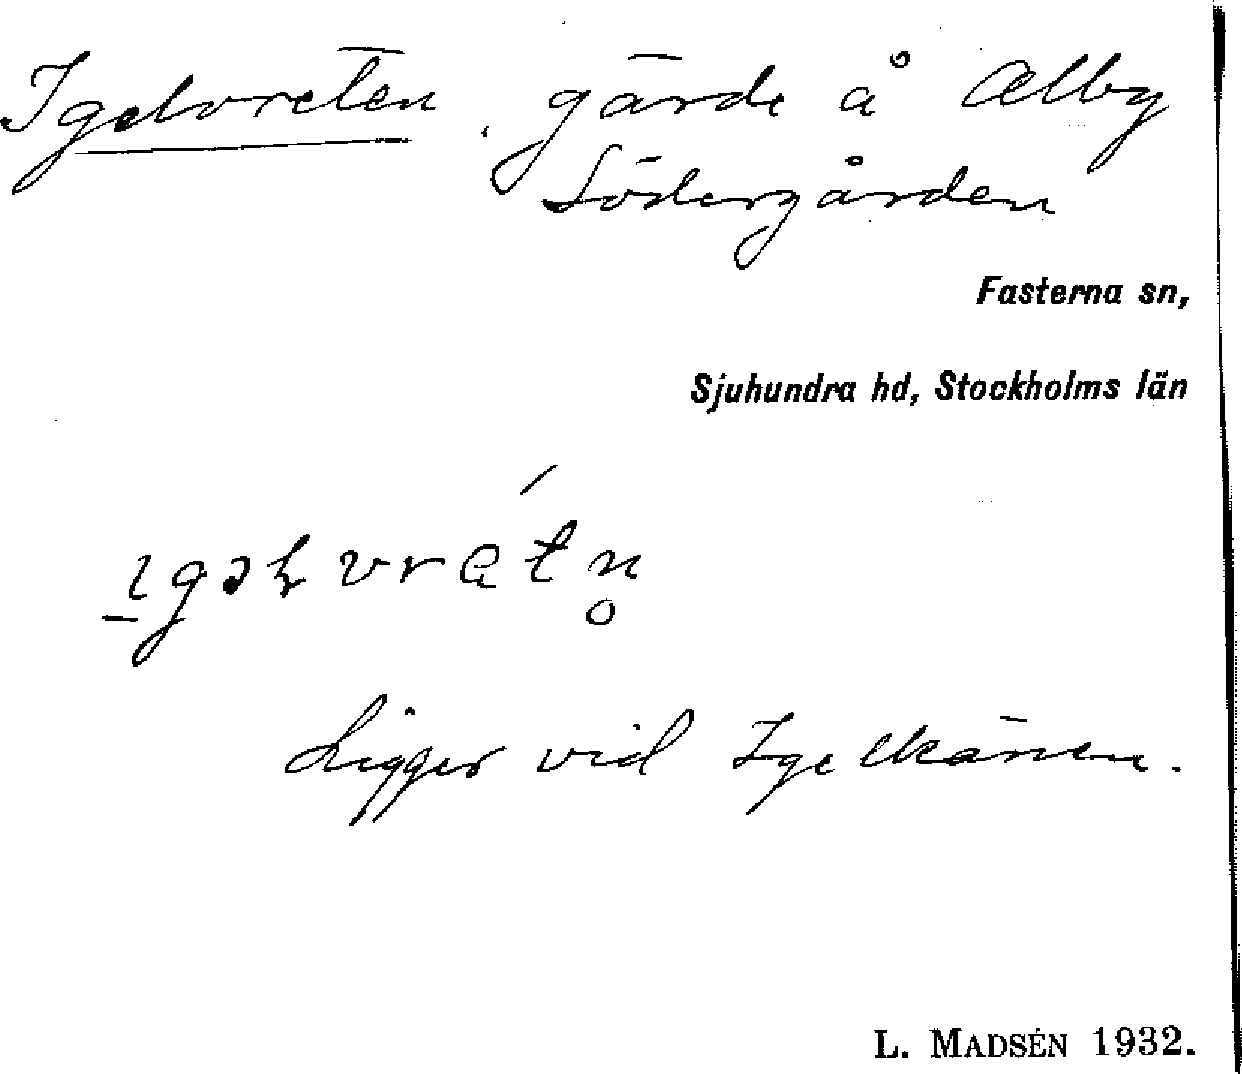 Igelvreten, gärde å Ælby
Södergården
Fasterna sn,
Sjuhundra hd, Stockholms län
Ligger vid Igelkänen.
L. MADSÉN 1932.